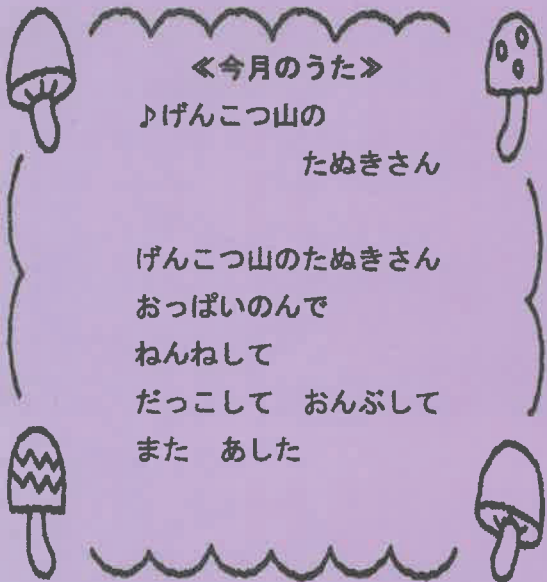 ≪今月のうた≫
♪げんこつ山の
たぬきさん
げんこつ山のたぬきさん
おっぱいのんで
ねんねして
だっこして　おんぶして
また　あした